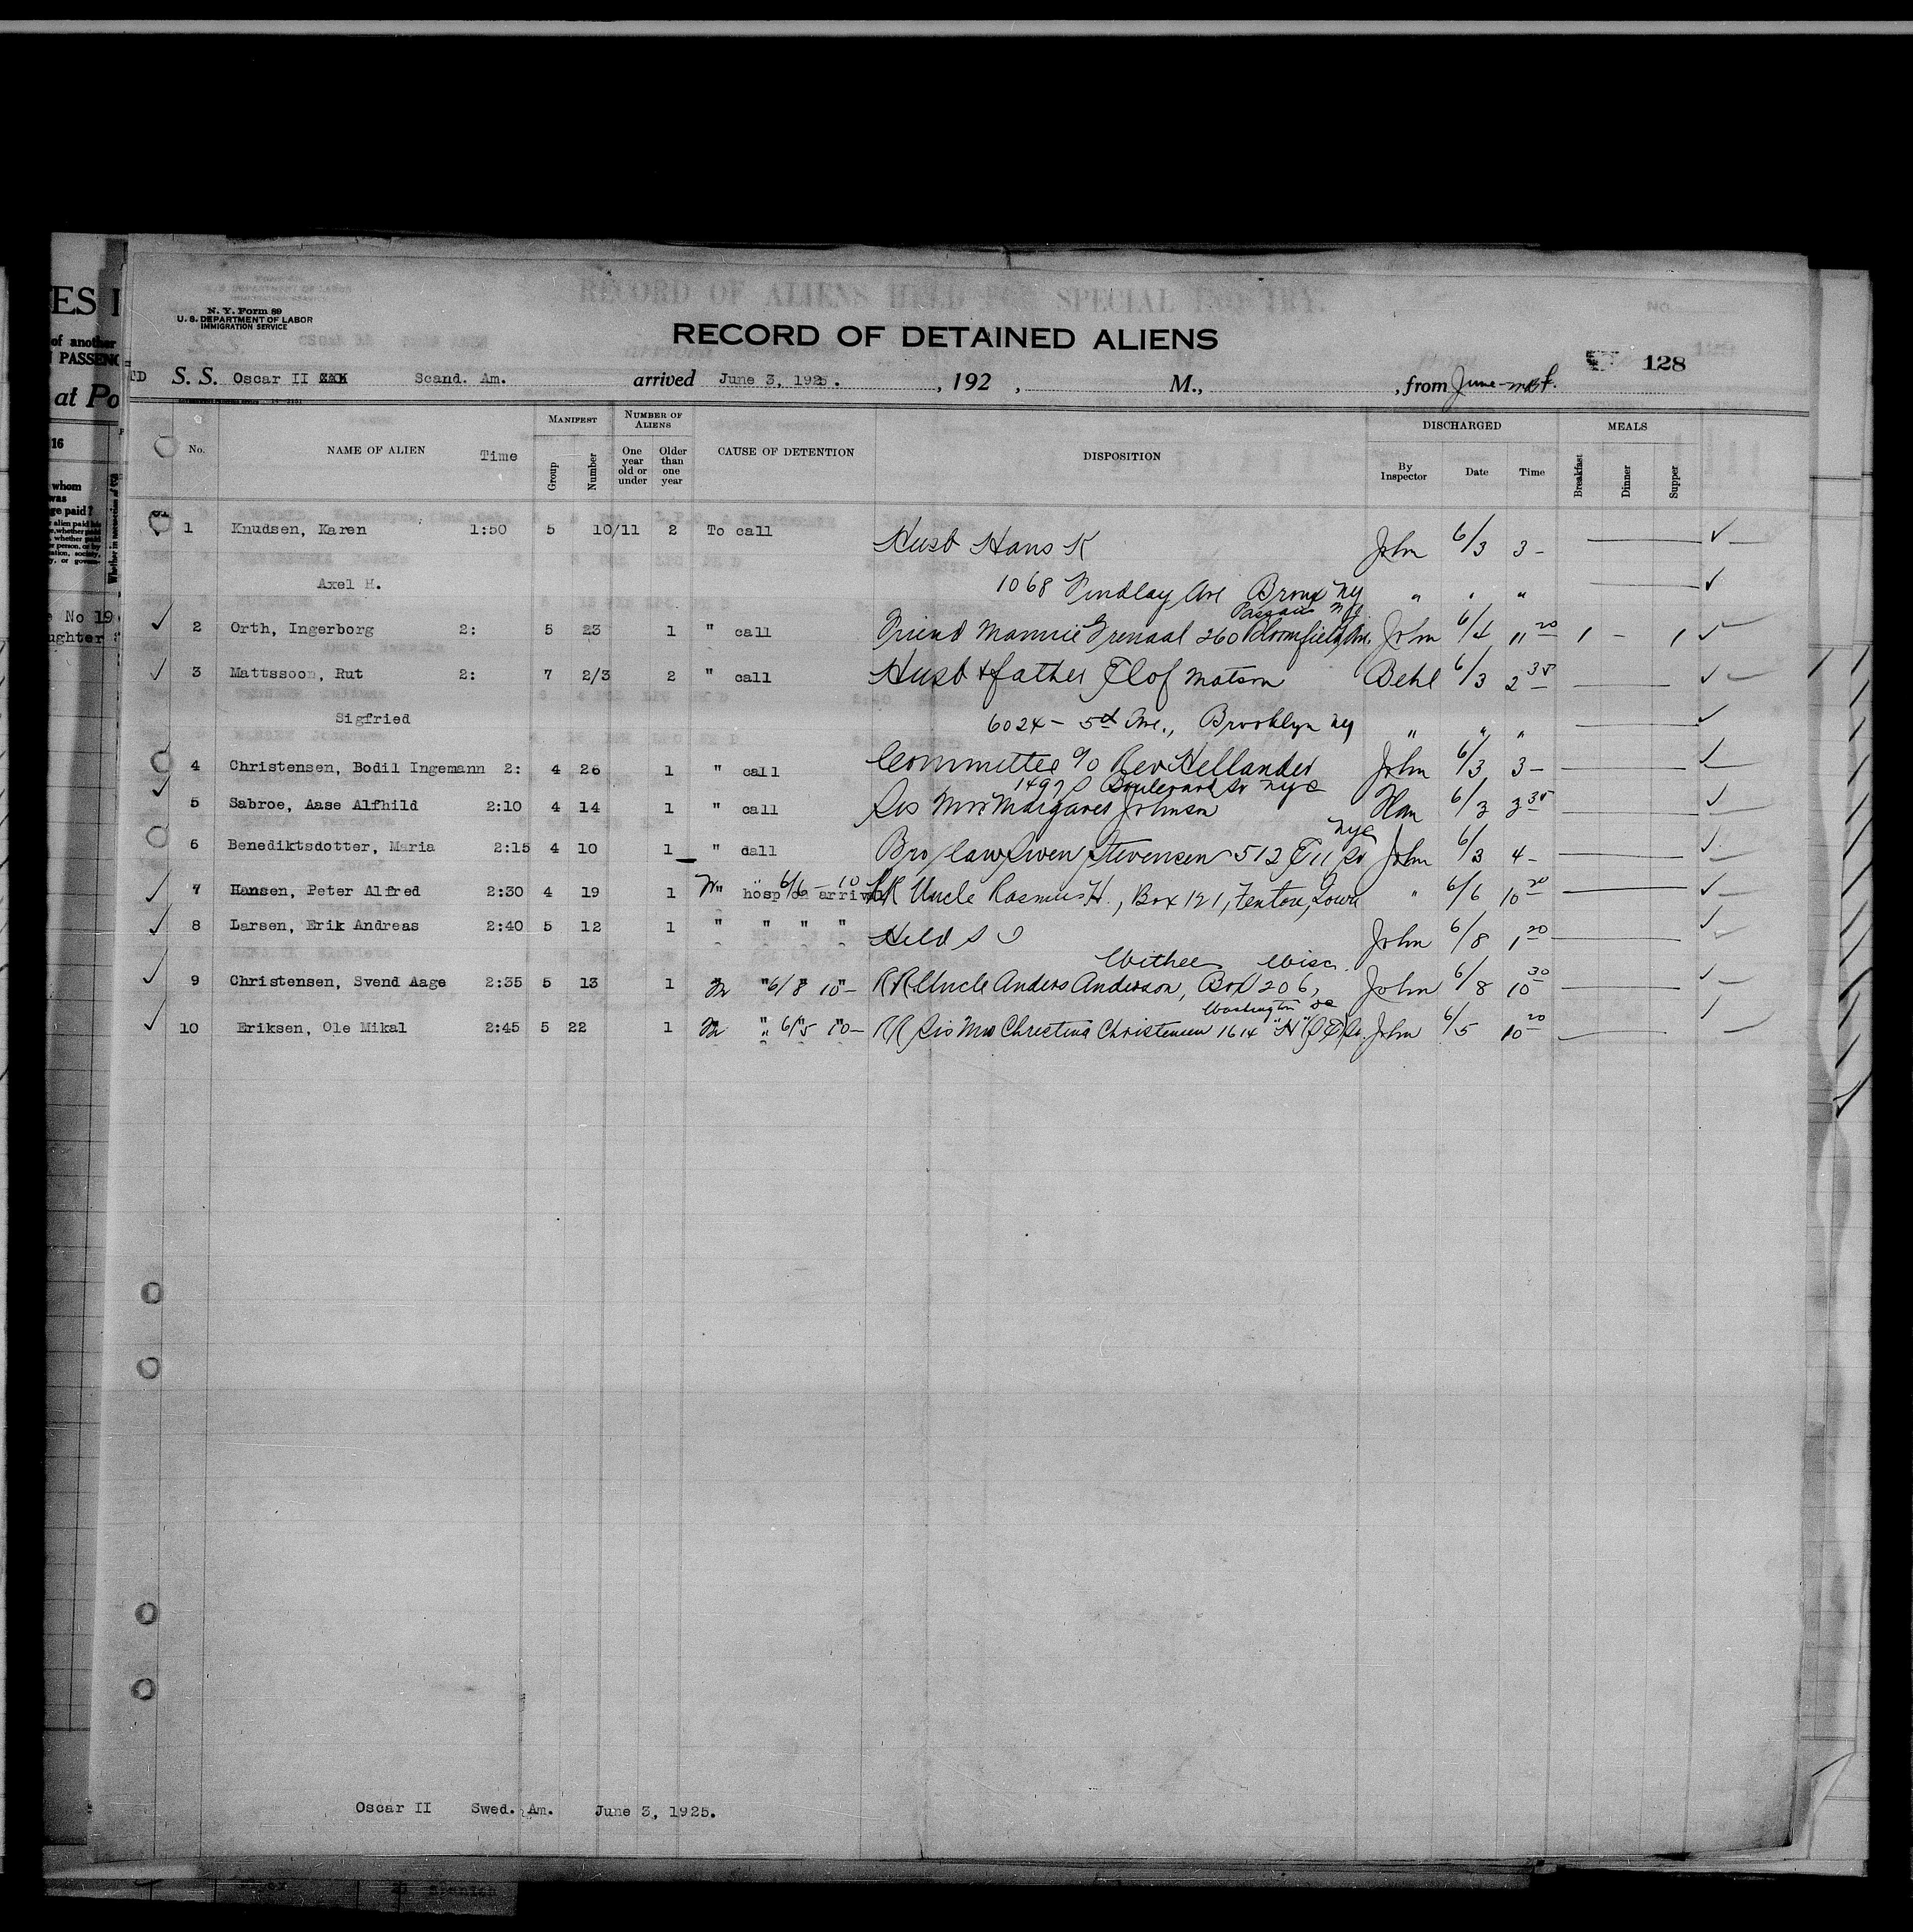 RECORD OF ALIENS HELD FOR SPECIAL INQUIRY.
N. Y. Form 89
U. S. DEPARTMENT OF LABOR
IMMIGRATION SERVICE
RECORD OF DETAINED ALIENS
128
S. S. Oscar II Scand. Am. arrived June 3, 1925. , 192 , M., , from June
No. NAME OF ALIEN Time MANIFEST Group Number NUMBER OF ALIENS One year old or under Older than one year CAUSE OF DETENTION DISPOSITION DISCHARGED By Inspector Date Time MEALS Breakfast Dinner Supper
1 Knudsen, Karen 1:50 5 10/11 2 To call Husb Hans K John 6/3 3 –
Axel H. 1068 Findlay Ave Bronx NY " " "
Passaic NJ
2 Orth, Ingerborg 2: 5 23 1 " call Friend Mannie Grenaal 260 Bloomfield Ave. John 6/4 11 20 1 – 1
3 Mattssoon, Rut 2: 7 2/3 2 " call Husb & father Elof Matson Behl 6/3 2 35
Sigfried 6024 – 5th Ave., Brooklyn NY " " "
4 Christensen, Bodil Ingemann 2: 4 26 1 " call Committee c/o Rev Hellander John 6/3 3 –
5 Sabroe, Aase Alfhild 2:10 4 14 1 " call Sis Mrs Margaret Johnson 6/3 3 35
NYC
6 Benediktsdotter, Maria 2:15 4 10 1 " call Bro/law Swen Stevensen 512 E 11 St John 6/3 4 –
7 Hansen, Peter Alfred 2:30 4 19 1 " hosp on arrival 6/6 – 10 RR Uncle Rasmus H., Box 121, Fenton, Iowa " 6/6 10 20
8 Larsen, Erik Andreas 2:40 5 12 1 " " " " Held S I John 6/8 1 20
Withee Wisc.
9 Christensen, Svend Aage 2:35 5 13 1 " 6/8 " 10 " – RR Uncle Anders Anderson, Box 206, John 6/8 10 30
Washington DC
10 Eriksen, Ole Mikal 2:45 5 22 1 " 6/5 " 10 – RR Sis Mrs Christina Christensen 1614 "H" St. John 6/5 10 20
Oscar II Swed. Am. June 3, 1925.